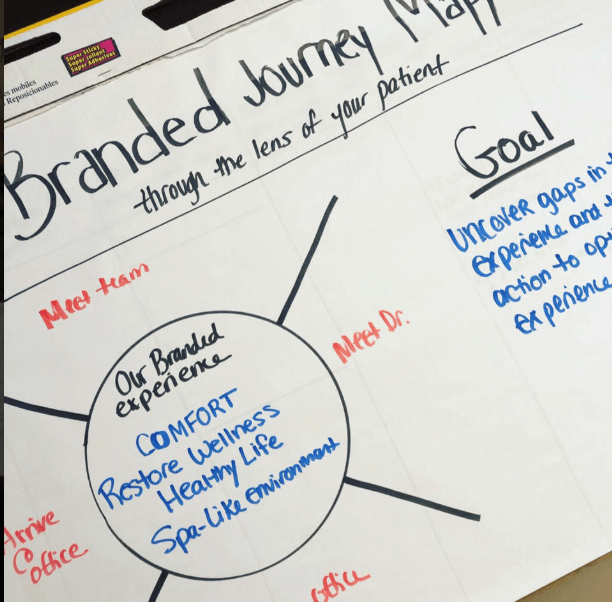 Super Sticky
Super collant
Super Adhesivas
es mobiles
Reposicionables
Branded Journey
through the lens of your patient
Goal
Uncover gaps in
experience and
action to
experience
Meet team
Meet Dr.
Our Branded
experience
COMFORT
Restore Wellness
Healthy Life
Spa-like environment
Arrive
@ office
office